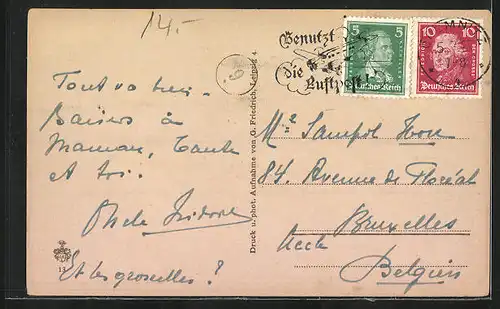 14.-
Benutzt
die
Luftpost
5
5
Deutsches Reich
10
10
Deutsches Reich
Tout va bien.
Baisers à
Maman, Tante
et toi.
Oncle Isidore
Et les groseilles?
13
Druck u. phot. Aufnahme von G. Friedrich, Leipzig 4.
Mr Sampol Yvon
84. Avenue de Floréal
Bruxelles
Uccle
Belgien